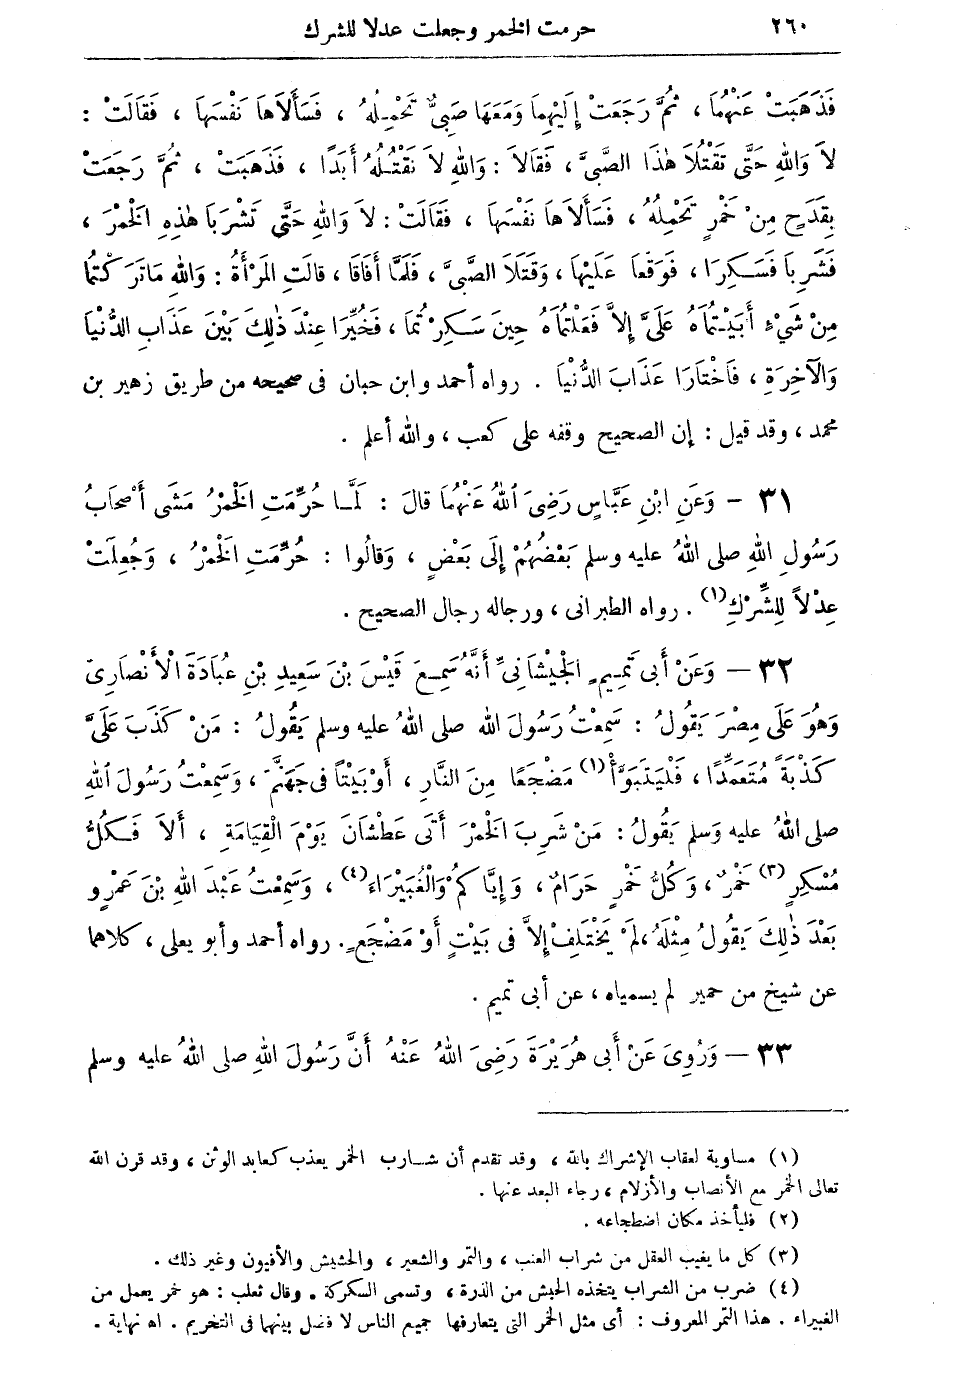 ٢٦٠ حرمت الخمر وجعلت عدلا للشرك
فَذَهَبَتْ عَنْهُمَا ، ثُمَّ رَجَعَتْ إِلَيْهِمَا وَمَعَهَا صَبِيٌّ تَحْمِلُهُ ، فَسَأَلَاهَا نَفْسَهَا ، فَقَالَتْ :
لَا وَاللهِ حَتَّى تَقْتُلَا هٰذَا الصَّبِيَّ ، فَقَالَا : وَاللهِ لَا نَقْتُلُهُ أَبَدًا ، فَذَهَبَتْ ، ثُمَّ رَجَعَتْ
بِقَدَحٍ مِنْ خَمْرٍ تَحْمِلُهُ ، فَسَأَلَاهَا نَفْسَهَا ، فَقَالَتْ : لَا وَاللهِ حَتَّى تَشْرَبَا هٰذِهِ الْخَمْرَ ،
فَشَرِبَا فَسَكِرَا ، فَوَقَعَا عَلَيْهَا ، وَقَتَلَا الصَّبِيَّ ، فَلَمَّا أَفَاقَا ، قَالَتِ الْمَرْأَةُ : وَاللهِ مَا تَرَكْتُمَا
مِنْ شَيْءٍ أَبَيْتُمَاهُ عَلَيَّ إِلَّا فَعَلْتُمَاهُ حِينَ سَكِرْتُمَا ، فَخُيِّرَا عِنْدَ ذٰلِكَ بَيْنَ عَذَابِ الدُّنْيَا
وَالْآخِرَةِ ، فَاخْتَارَا عَذَابَ الدُّنْيَا . رواه أحمد وابن حبان فى صحيحه من طريق زهير بن
محمد ، وقد قيل : إن الصحيح وقفه على كعب ، والله أعلم .
٣١ - وَعَنِ ابْنِ عَبَّاسٍ رَضِيَ اللهُ عَنْهُمَا قَالَ : لَمَّا حُرِّمَتِ الْخَمْرُ مَشَى أَصْحَابُ
رَسُولِ اللهِ صلى اللهُ عليه وسلم بَعْضُهُمْ إِلَى بَعْضٍ ، وَقَالُوا : حُرِّمَتِ الْخَمْرُ ، وَجُعِلَتْ
عِدْلًا لِلشِّرْكِ (١) . رواه الطبرانى ، ورجاله رجال الصحيح .
٣٢ - وَعَنْ أَبِى تَمِيمٍ الْجَيْشَانِيِّ أَنَّهُ سَمِعَ قَيْسَ بْنَ سَعِيدِ بْنِ عُبَادَةَ الْأَنْصَارِىَّ
وَهُوَ عَلَى مِصْرَ يَقُولُ : سَمِعْتُ رَسُولَ الله صلى اللهُ عليه وسلم يَقُولُ : مَنْ كَذَبَ عَلَيَّ
كَذْبَةً مُتَعَمِّدًا ، فَلْيَتَبَوَّأْ (١) مَضْجَعًا مِنَ النَّارِ ، أَوْ بَيْتًا فِى جَهَنَّمَ ، وَسَمِعْتُ رَسُولَ اللهِ
صلى اللهُ عليه وَسلم يَقُولُ : مَنْ شَرِبَ الْخَمْرَ أَتَى عَطْشَانَ يَوْمَ الْقِيَامَةِ ، أَلَا فَكُلُّ
مُسْكِرٍ (٣) خَمْرٌ ، وَكُلُّ خَمْرٍ حَرَامٌ ، وَإِيَّاكُمْ وَالْغُبَيْرَاءَ (٤) ، وَسَمِعْتُ عَبْدَ اللهِ بْنَ عَمْرٍو
بَعْدَ ذٰلِكَ يَقُولُ مِثْلَهُ ، لَمْ يَخْتَلِفْ إِلَّا فِى بَيْتٍ أَوْ مَضْجَعٍ . رواه أحمد وأبو يعلى ، كلاهما
عن شيخ من حمير لم يسمياه ، عن أبى تميم .
٣٣ - وَرُوِىَ عَنْ أَبِى هُرَيْرَةَ رَضِىَ اللهُ عَنْهُ أَنَّ رَسُولَ اللهِ صلى اللهُ عليه وسلم
(١) مساوية لعقاب الإشراك بالله ، وقد تقدم أن شارب الخمر يعذب كعابد الوثن ، وقد قرن الله
تعالى الخمر مع الأنصاب والأزلام ، رجاء البعد عنها .
(٢) فليأخذ مكان اضطجاعه .
(٣) كل ما يغيب العقل من شراب العنب ، والتمر والشعير ، والحشيش والأفيون وغير ذلك .
(٤) ضرب من الشراب يتخذه الحبش من الذرة ، وتسمى السكركة . وقال ثعلب : هو خمر يعمل من
الغبيراء . هذا التمر المعروف : أى مثل الخمر التى يتعارفها جميع الناس لا فضل بينهما فى التحريم . اه نهاية .